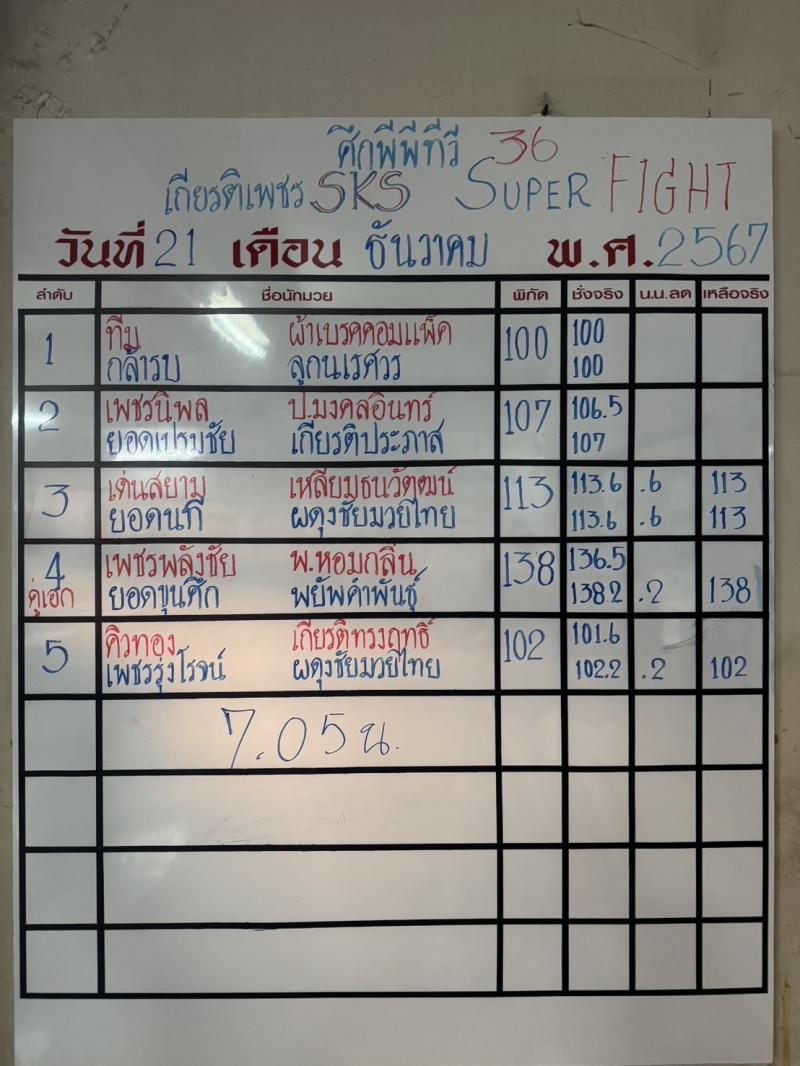 ศึกพีพีทีวี 36
เกียรติเพชร SKS SUPER FIGHT
วันที่ 21 เดือน ธันวาคม พ.ศ. 2567
ลำดับ ชื่อนักมวย พิกัด ชั่งจริง น.น.ลด เหลือจริง
1 ทีม ผ้าเบรคคอมแพ็ค 100 100
กล้ารบ ลูกนเรศวร 100
2 เพชรนิพล ป.มงคลอินทร์ 107 106.5
ยอดเปรมชัย เกียรติประภาส 107
3 เด่นสยาม เหลี่ยมธนวัฒน์ 113 113.6 .6 113
ยอดนที ผดุงชัยมวยไทย 113.6 .6 113
4 เพชรพลังชัย พ.หอมกลิ่น 138 136.5
คู่เอก ยอดขุนศึก พยัพคำพันธุ์ 138.2 .2 138
5 คิวทอง เกียรติทรงฤทธิ์ 102 101.6
เพชรรุ่งโรจน์ ผดุงชัยมวยไทย 102.2 .2 102
7.05 น.